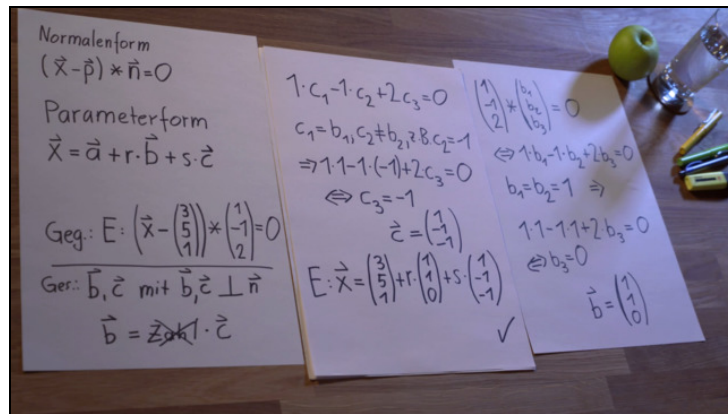 Normalenform
(x⃗-p⃗)*n⃗=0
Parameterform
x⃗=a⃗+r·b⃗+s·c⃗
Geg.: E: (x⃗-(3 5 1))*(1 -1 2)=0
Ges.: b⃗,c⃗ mit b⃗,c⃗ ⊥ n⃗
b⃗ = Zahl·c⃗
1·c₁-1·c₂+2c₃=0
c₁=b₁,c₂≠b₂,z.B.c₂=-1
⇒1·1-1·(-1)+2c₃=0
⇔c₃=-1
c⃗=(1 -1 -1)
E:x⃗=(3 5 1)+r·(1 1 0)+s·(1 -1 -1)
✓
(1 -1 2)*(b₁ b₂ b₃)=0
⇔1·b₁-1·b₂+2·b₃=0
b₁=b₂=1 ⇒
1·1-1·1+2·b₃=0
⇔b₃=0
b⃗=(1 1 0)